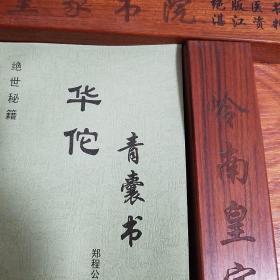 皇家书院
绝版医书
湛江资
绝世秘籍
华佗
青囊书
郑程公
岭南皇家